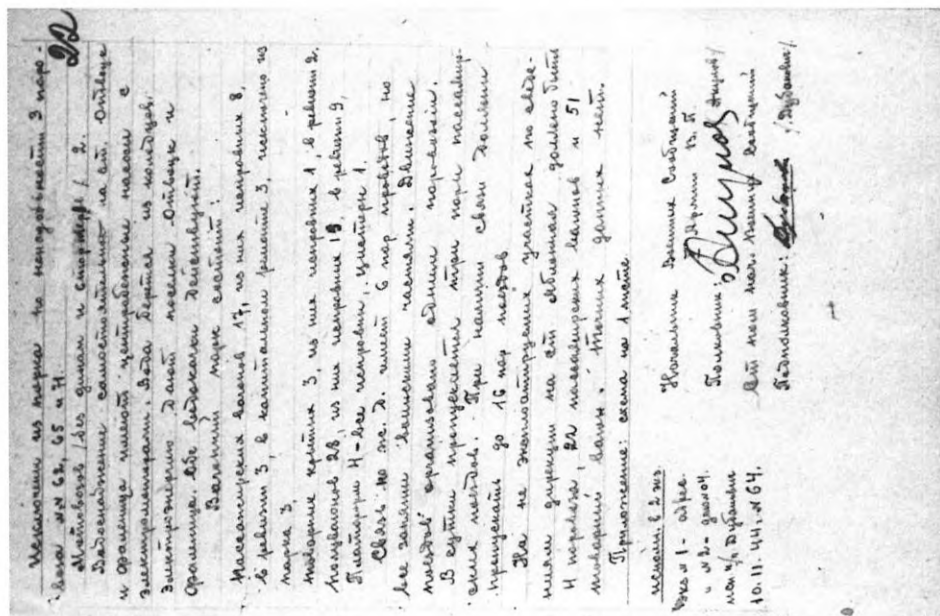 22
Исключены из парка по негодности 3 паро-
воза №№ 62, 65 и 71.
Мотовоз без динам и стартера / 2
Водоснабжение самостоятельное на ст. Отвоцк
и Франшица имеют центробежные насосы с
электромоторами. Вода берется из колодцев.
Электроэнергию дают поселки Отвоцк и
Франшица. Все водокачки действуют.
Вагонный парк состоит:
Пассажирских вагонов 17, из них исправных 8,
в ремонте 3, в капитальном ремонте 3, исключено из
парка 3
товарных крытых 3, из них исправных 1, в ремонте 2.
Полувагонов 28, из них исправных 19, в ремонте 9,
Платформ 4 - все исправны, цистерн 1
Связь на ж.д. имеет 6 пар провода, но
все заняты воинскими частями. Движение
поездов организовано одним паровозом,
В сутки пропускается три пары пассажир-
ских поездов. При наличии связи можно
пропускать до 16 пар поездов
На не эксплоатируемых участках по све-
дениям дирекции на ст. Яблонна должно быть
4 паровоза, 22 пассажирских вагонов и 51
товарный вагон. Точных данных нет.
Приложение: схема на 1 листе.
Начальник Военных Сообщений
Полковник:
Ст. пом. нач. Военных Сообщений
Подполковник: /Дубаневич/
исполн. в 2 экз.
Экз № 1 - адрес.
" № 2 - дело № 04.
10.11.44г. № 64.